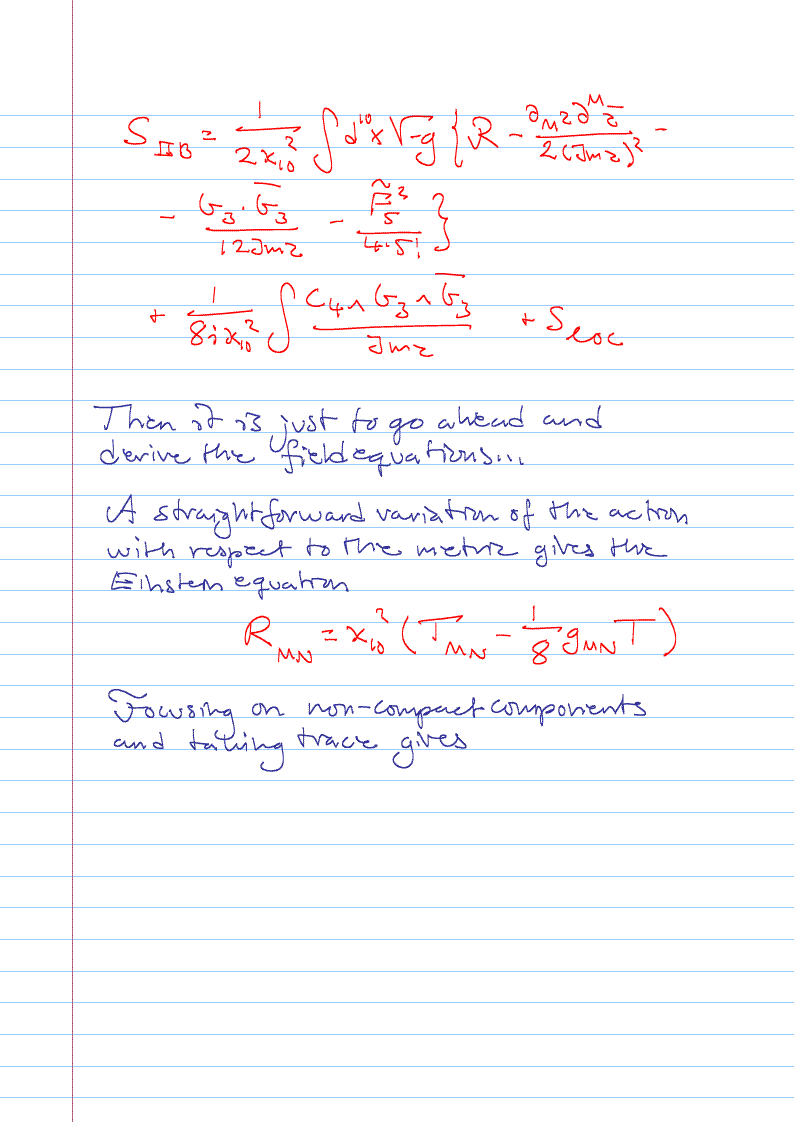 S_IIB = 1/(2κ₁₀²) ∫ d¹⁰x √-g { R - ∂_M τ ∂^M τ̄ / 2(Imτ)² -
- G₃·Ḡ₃ / 12 Imτ - F̃₅² / 4·5! }
+ 1/(8iκ₁₀²) ∫ C₄∧G₃∧Ḡ₃ / Imτ + S_loc
Then it is just to go ahead and
derive the field equations...
A straightforward variation of the action
with respect to the metric gives the
Einstein equation
R_MN = κ₁₀² (T_MN - 1/8 g_MN T)
Focusing on non-compact components
and taking trace gives